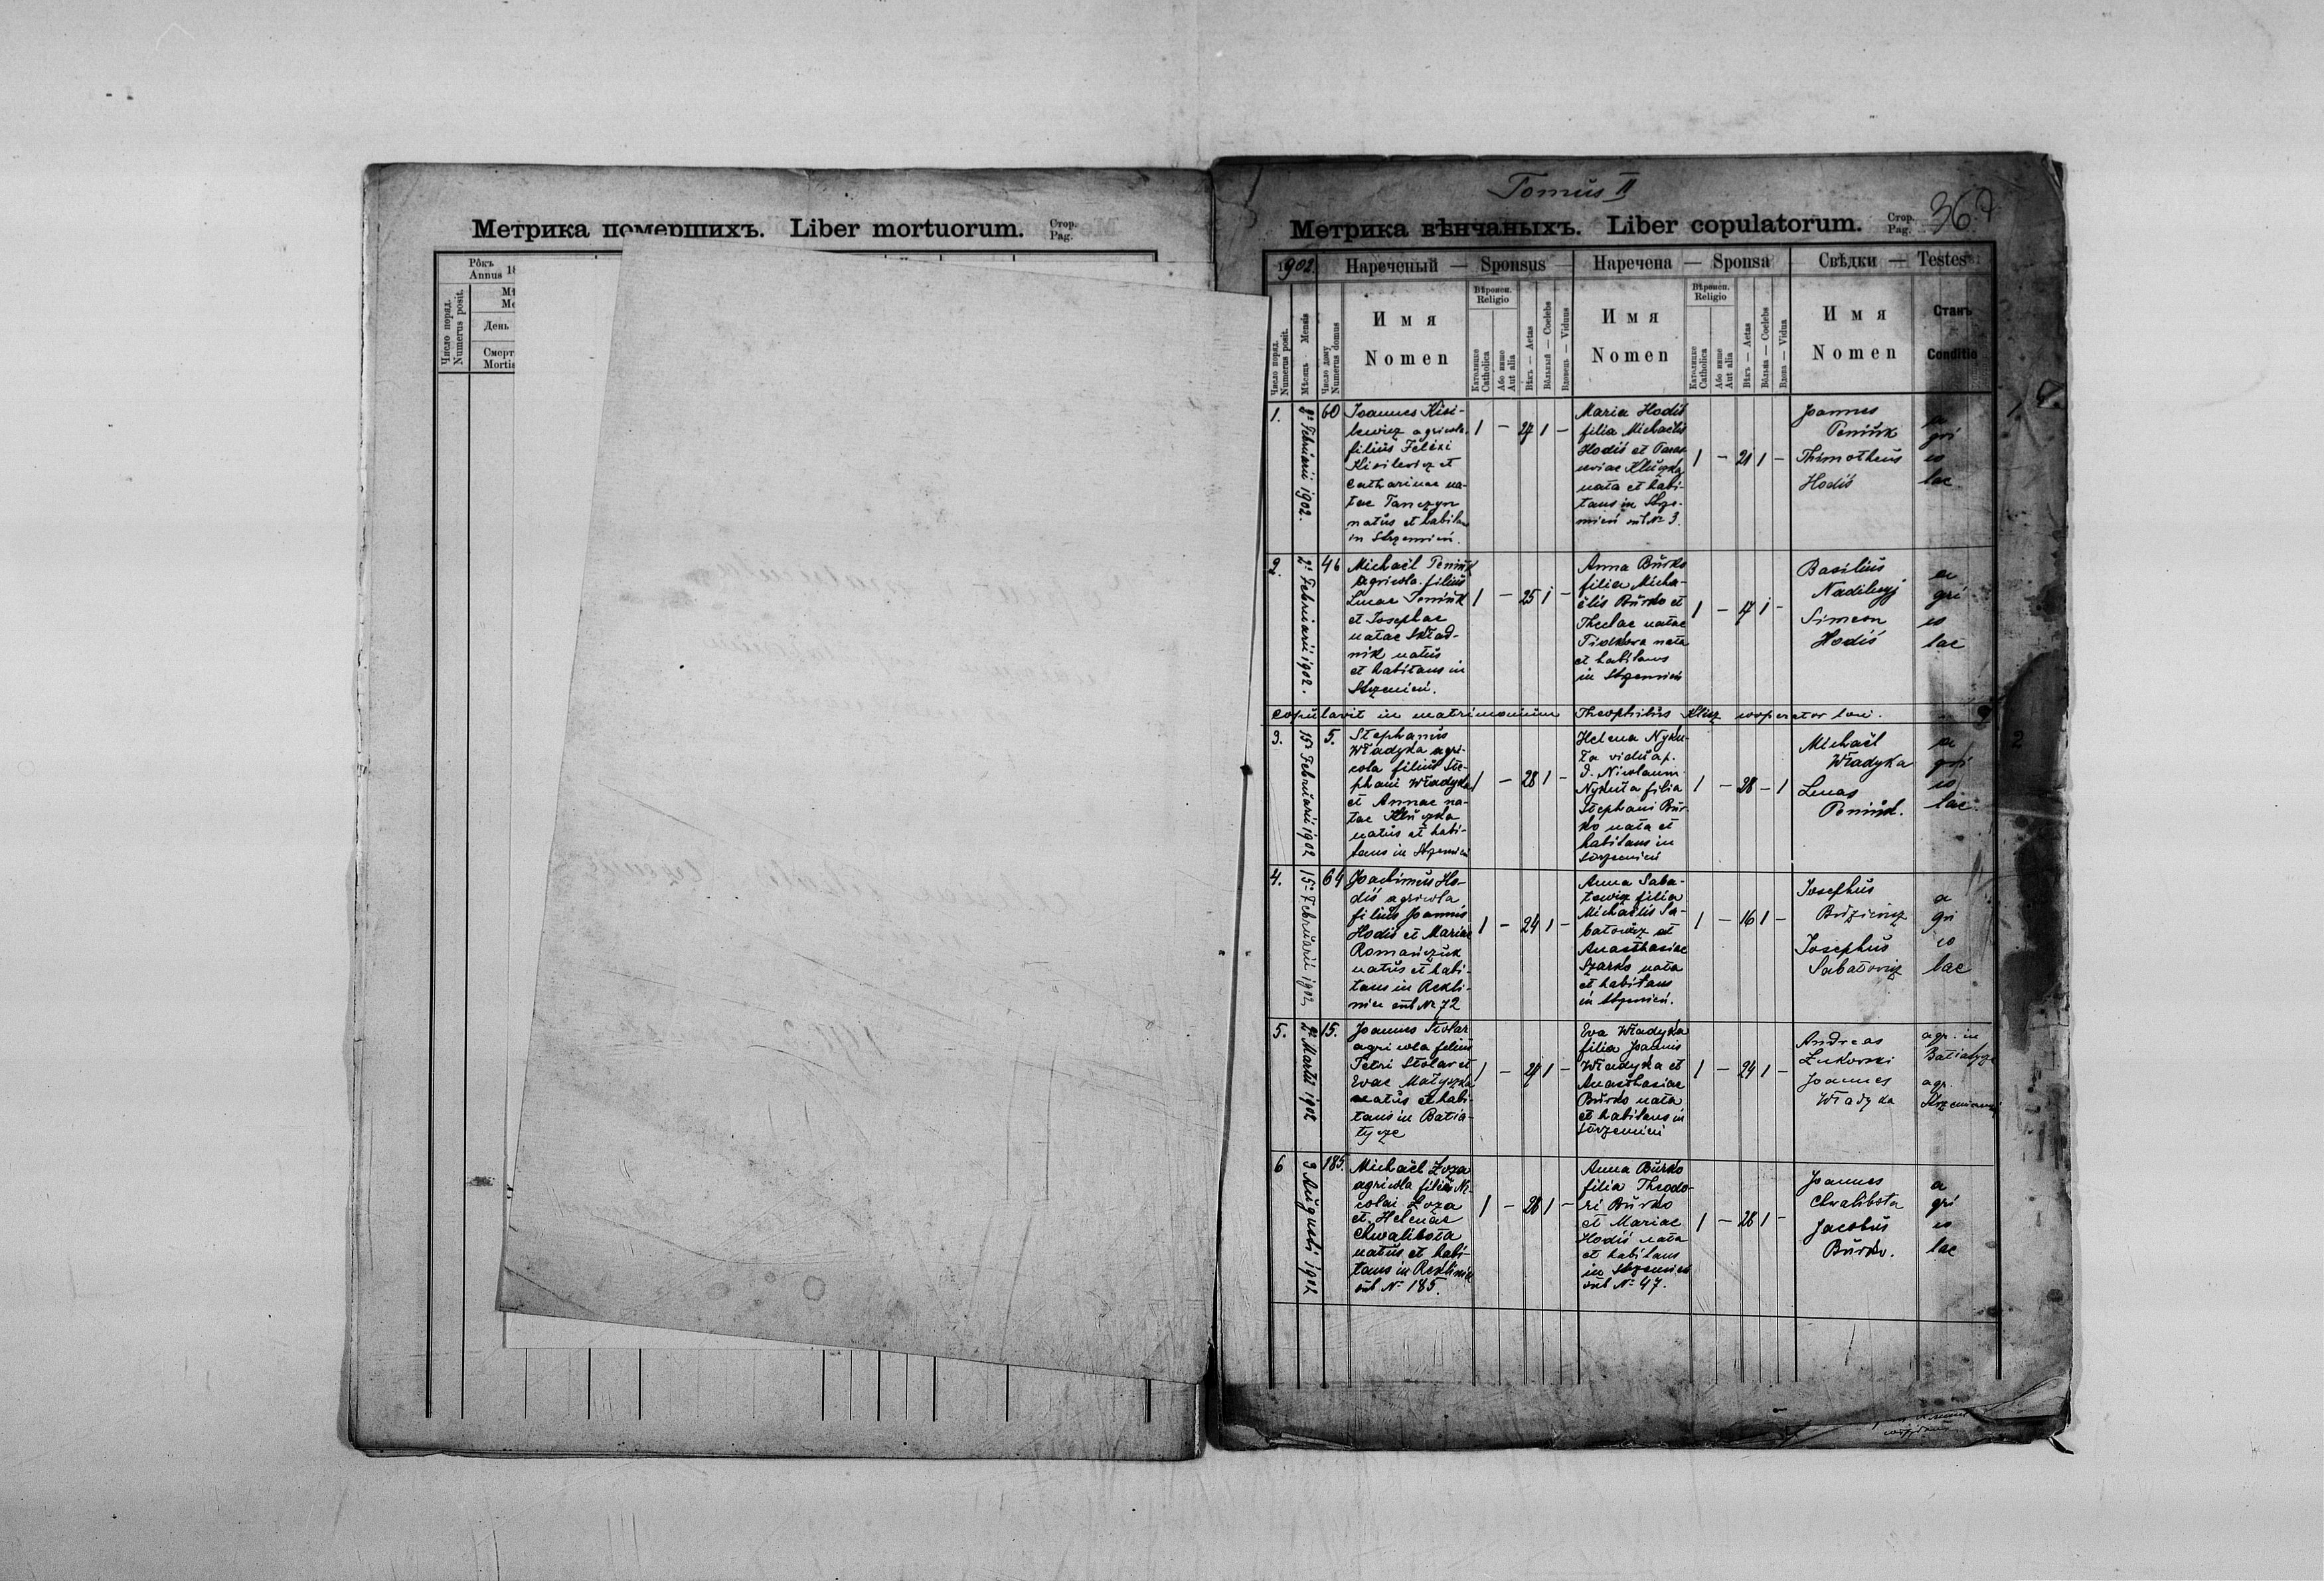 Метрика померших. Liber mortuorum. Стор. Pag.
Рôкъ
Annus 18
Число поряд.
Numerus posit.
День
Смерт
Mortis
Tomus II
Метрика вѣнчаныхъ. Liber copulatorum. Стор. Pag. 36
1902. Нареченый — Sponsus Наречена — Sponsa Свѣдки — Testes
Число поряд.
Numerus posit.
Мѣсяць Mensis
Число дому
Numerus domus
Имя
Nomen
Вѣроисп.
Religio
Католицке
Catholica
Або инше
Aut alia
Вѣкъ — Aetas
Вôльный — Coelebs
Вдовець — Viduus
Имя
Nomen
Вѣроисп.
Religio
Католицке
Catholica
Або инше
Aut alia
Вѣкъ — Aetas
Вôльна — Coelebs
Вдова — Vidua
Имя
Nomen
Станъ
Conditio
1.
2 Februarii 1902.
60
Joannes Kisi-
lewicz agricola
filius
Kisilewicz et
Catharinae na-
tae Tanczyn
natus et habitans
in Strzemień.
1 — 27 1 —
Maria Hodiś
filia Michaelis
Hodiś et Paras-
ceviae Kluczka
nata et habi-
tans in Strze-
mień sub Nr 3.
1 — 21 1 —
Joannes
Peniuk
Thimotheus
Hodiś
a
gri
co
lae
2.
2 Februarii 1902.
46
Michaël Peniuk
agricola filius
Lucae Peniuk
et Josephae
natae Skład-
nik natus
et habitans in
Strzemień.
1 — 25 1 —
Anna Burko
filia Micha-
ëlis Burko et
Theclae natae
nata
et habitans
in Strzemień
1 — 17 1 —
Basilius
Simeon
Hodiś
a
gri
co
lae
copulavit in matrimonium Theophilus cooperator loci.
3.
15 Februarii 1902
5.
Stephanus
Władyka agri-
cola filius Ste-
phani Władyka
et Annae na-
tae Kluczka
natus et habi-
tans in Strzemień
1 — 28 1 —
Helena Nyku-
ta vidua p.
d. Nicolaum
Nykuta filia
Stephani Bur-
ko nata et
habitans in
Strzemień
1 — 38 — 1
Michaël
Władyka
Lucas
Peniuk.
a
gri
co
lae
4.
15 Februarii 1902
64
Joachimus Ho-
diś agricola
filius Joannis
Hodiś et Mariae
Romańczuk
natus et habi-
tans in Rekli-
niec sub Nr 72
1 — 24 1 —
Anna Saba-
towicz filia
Michaëlis Sa-
batowicz et
Anasthasiae
Szarko nata
et habitans
in Strzemień.
1 — 16 1 —
Josephus
Josephus
Sabatowicz
a
gri
co
lae
5.
2 Martii 1902
15.
Joannes Stolar
agricola filius
Petri Stolar et
Evae Małyszka
natus et habi-
tans in Batia-
tycze
1 — 27 1 —
Eva Władyka
filia Joannis
Władyka et
Anasthasiae
Burko nata
et habitans in
Strzemień
1 — 24 1 —
Andreas
Żukowski
Joannes
Władyka
agr. in
Batiatycze
agr.
6
3 Augusti 1902
185.
Michaël Łoza
agricola filius Ni-
colai Łoza
et Helenae
Chwalibota
natus et habi-
tans in Rekliniec
sub Nr 185.
1 — 28 1 —
Anna Burko
filia Theodo-
ri Burko
et Mariae
Hodiś nata
et habitans
in Strzemień
sub Nr 47.
1 — 28 1 —
Joannes
Chwalibota
Jacobus
Burko.
a
gri
co
lae